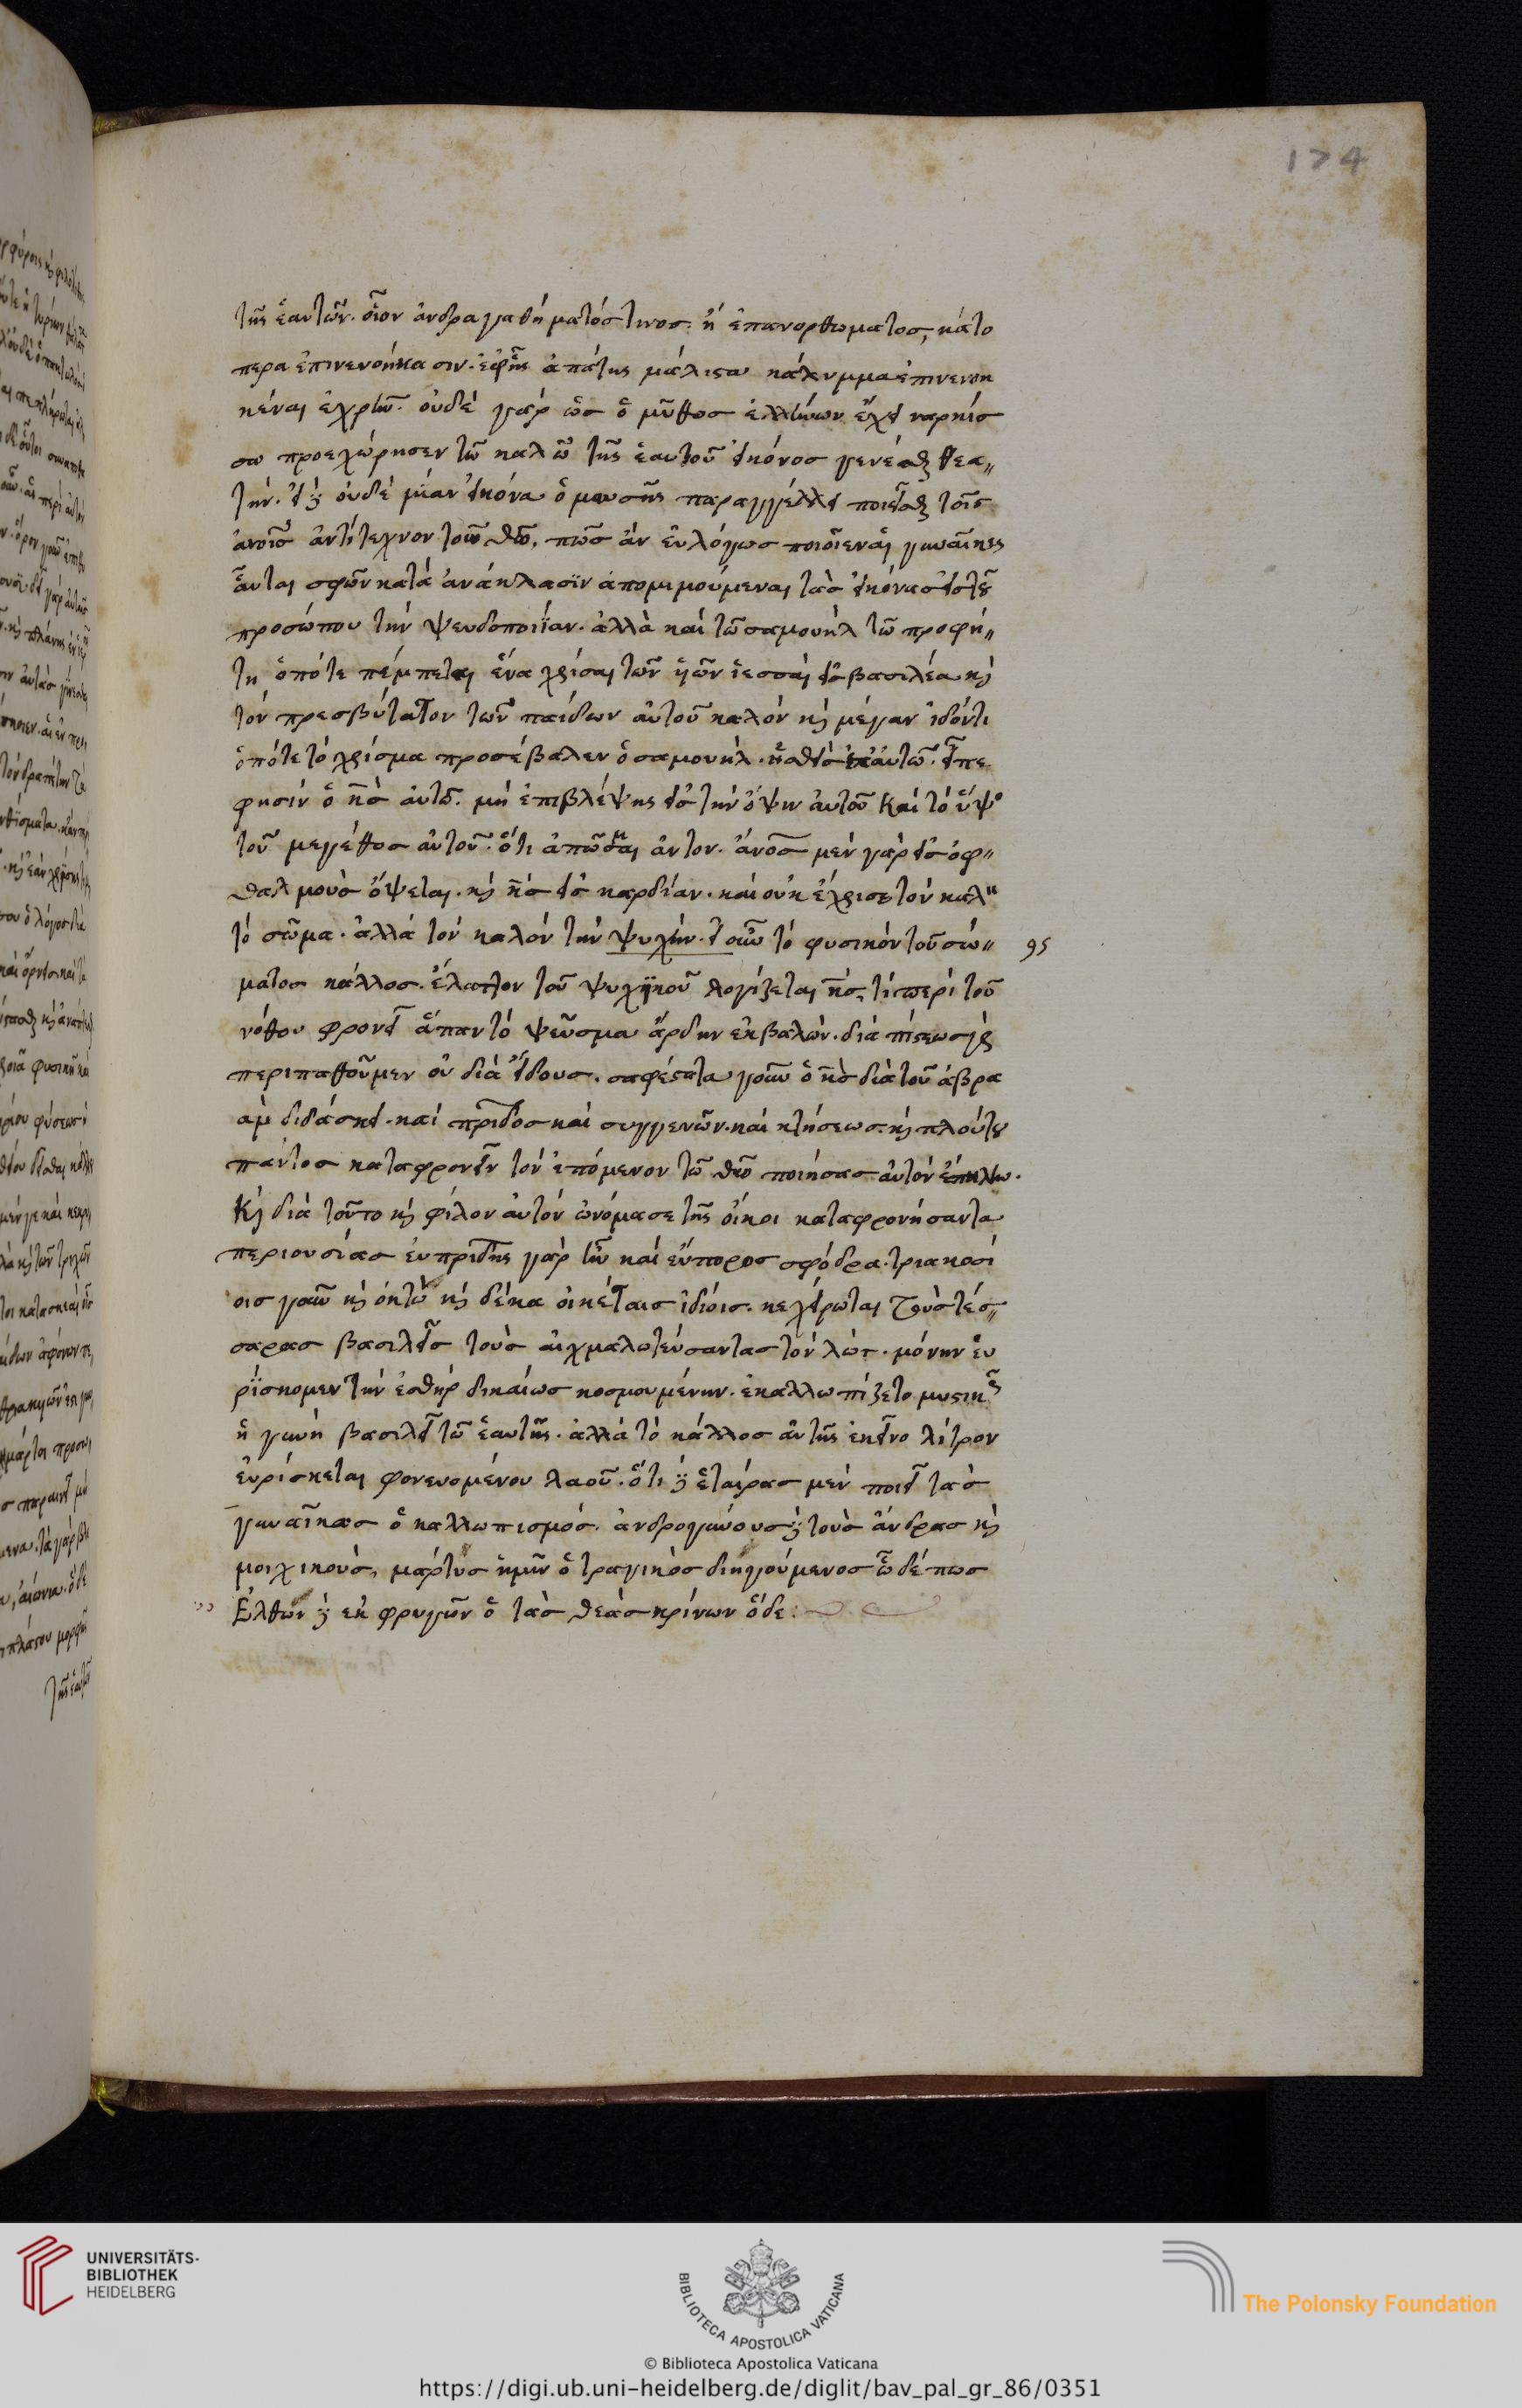 174
τῆς ἑαυτῶν. οἷον ἀνδραγαθήματός τινος. ἢ ἐπανορθωματος, κάτο
περα ἐπινενοήκασιν. ἐφ' ἧς ἀπάτης μάλιστα κάλυμμα ἐπινενοη
κέναι ἐχρῆν. οὐδὲ γὰρ ὡς ὁ μῦθος ἑλλήνων ἔχει ναρκίσ
σω προεχώρησεν τῶ καλῶ τῆς ἑαυτοῦ εἰκόνος γενέσθαι θεα〃
τήν. εἰ δὲ οὐδὲ μίαν εἰκόνα ὁ μωσῆς παραγγέλλει ποιεῖσθαι τοῖς
ἀνοις ἀντίτεχνον τοῦ θῶ, πῶς ἂν εὐλόγως ποιοῖεν αἱ γυναῖκες
αὗται σφῶν κατὰ ἀνάκλασϊν ἀπομιμούμεναι τὰς εἰκόνας εἰς τοῦ
προσώπου τὴν ψευδοποιΐαν. ἀλλὰ καὶ τῶ σαμουὴλ τῶ προφή〃
τη ὁπότε πέμπεται ἕνα χρίσαι τῶν ὑῶν ἰεσσαὶ εἰς βασιλέα κὶ
τὸν πρεσβύτατον τῶν παίδων αὐτοῦ καλὸν κὶ μέγαν ἰδόντι
ὁπότε τὸ χρίσμα προσέβαλεν ὁ σαμουὴλ. αὐτῶ. εἶπε
φησὶν ὁ κς αὐτῶ. μὴ ἐπιβλέψης εἰς τὴν ὄψιν αὐτοῦ καὶ τὸ ὕψο
τοῦ μεγέθος αὐτοῦ. ὅτι ἀπῶσμαι αὐτον. ἄνος μὲν γὰρ εἰς ὀφ〃
θαλμοὺς ὄψεται. κὶ κς εἰς καρδίαν. καὶ οὐκ ἔχρισε τὸν καλὸν
τὸ σῶμα. ἀλλὰ τὸν καλὸν τὴν ψυχήν. εἰ οὖν τὸ φυσικὸν τοῦ σώ〃 95
ματος κάλλος. ἔλαττον τοῦ ψυχϊκοῦ λογίζεται κς, τί περὶ τοῦ
νόθου φρονεῖ ἅπαν τὸ ψεῦσμα ἄρδην ἐκβαλὼν. διὰ πίστεως γὰρ
περιπαθοῦμεν οὐ διὰ εἴδους. σαφέστατα γοῦν ὁ κς διὰ τοῦ ἀβρα
αμ διδάσκει. καὶ πρίδος καὶ συγγενῶν. καὶ κτήσεως. κὶ πλούτου
παντος καταφρονεῖν τὸν ἑπόμενον τῶ θῶ ποιήσας αὐτὸν ἔπηλυν.
Κὶ διὰ τοῦτο κὶ φίλον αὐτὸν ὠνόμασε τῆς οἴκοι καταφρονήσαντα
περιουσίας εὐπρίδης γὰρ ἦν καὶ εὔπορος σφόδρα. τριακοσί
οις γοῦν κὶ ὀκτὼ κὶ δέκα οἰκέταις ἰδίοις. κεχείρωται τοὺς τέσ〃
σαρας βασιλεῖς τοὺς αἰχμαλωτεύσαντας τὸν λὼτ. μόνην εὑ
ρΐσκομεν τὴν ἐσθὴρ δικαίως κοσμουμένην. ἐκαλλωπίζετο μυστικῶς
ἡ γυνὴ βασιλεῖ τῶ ἑαυτῆς. ἀλλὰ τὸ κάλλος αὐτῆς ἐκεῖνο λύτρον
εὑρίσκεται φονευομένου λαοῦ. ὅτι δὲ ἑταίρας μὲν ποιεῖ τὰς
γυναῖκας ὁ καλλωπισμός. ἀνδρογύνους δὲ τοὺς ἄνδρας κὶ
μοιχικοὺς, μάρτυς ἡμῖν ὁ τραγικὸς διηγούμενος ὧδέ πως
Ἐλθὼν δὲ ἐκ φρυγῶν ὁ τὰς θεὰς κρίνων ὅδε:
UNIVERSITÄTS-
BIBLIOTHEK
HEIDELBERG
BIBLIOTECA APOSTOLICA VATICANA
The Polonsky Foundation
© Biblioteca Apostolica Vaticana
https://digi.ub.uni-heidelberg.de/diglit/bav_pal_gr_86/0351